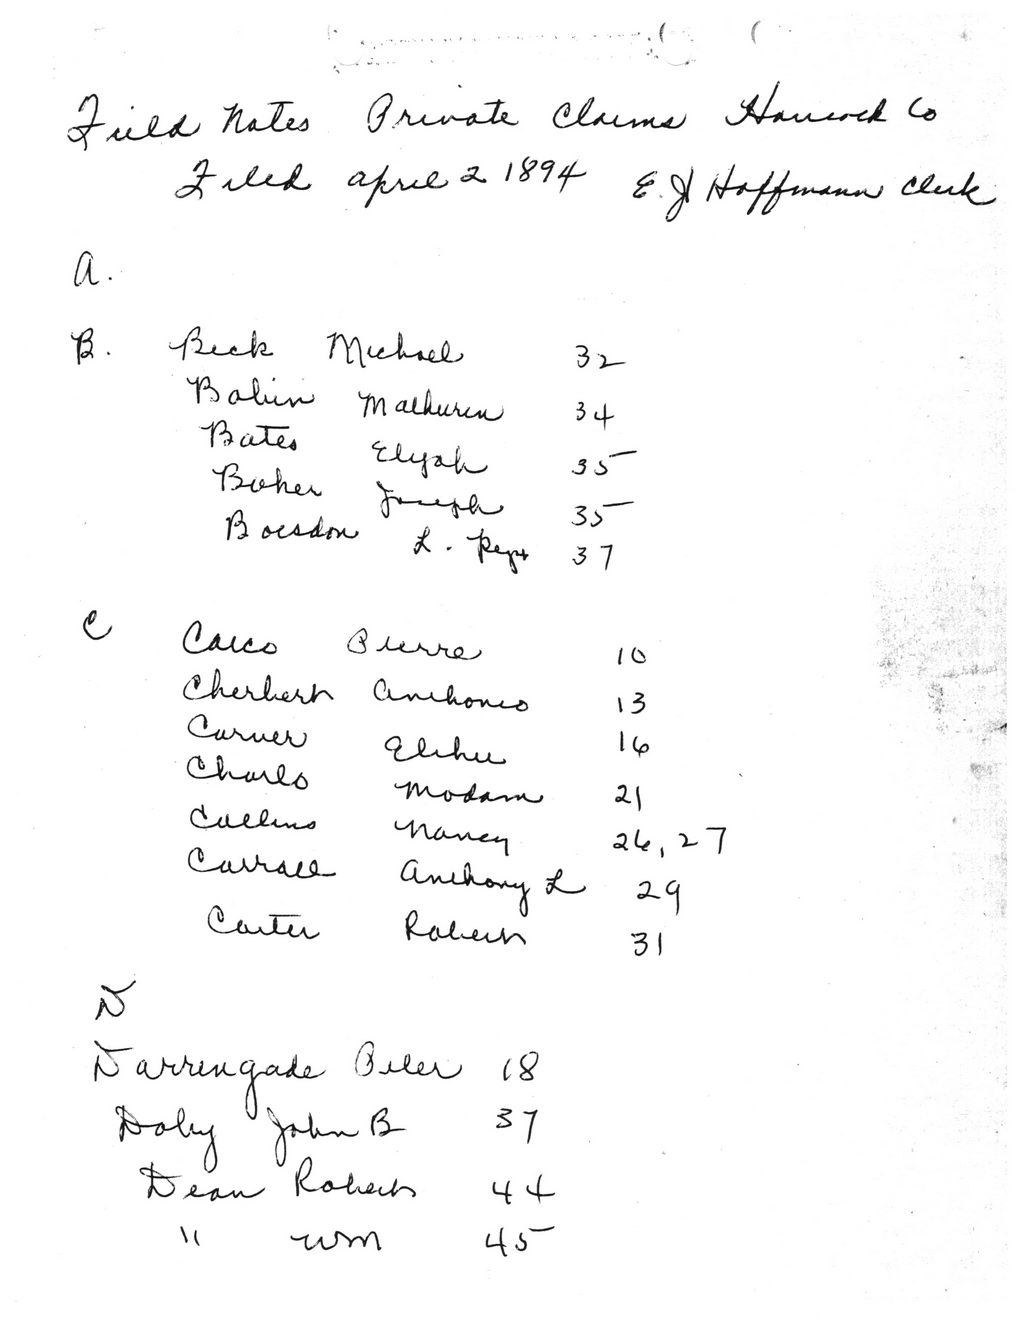 Field Notes Private Claims Hancock Co
Filed April 2 1894 E. J Hoffmann Clerk
A.
B. Beck Michael 32
Babin Mathurin 34
Bates Elijah 35
Joseph 35
L. 37
C Carco Pierre 10
Cherbert Anthonio 13
Carver Elihu 16
Charlo Madam 21
Collins Nancy 26, 27
Carroll Anthony L 29
Carter Robert 31
D
Darrengade Peter 18
Doby John B 37
Dean Robert 44
" Wm 45